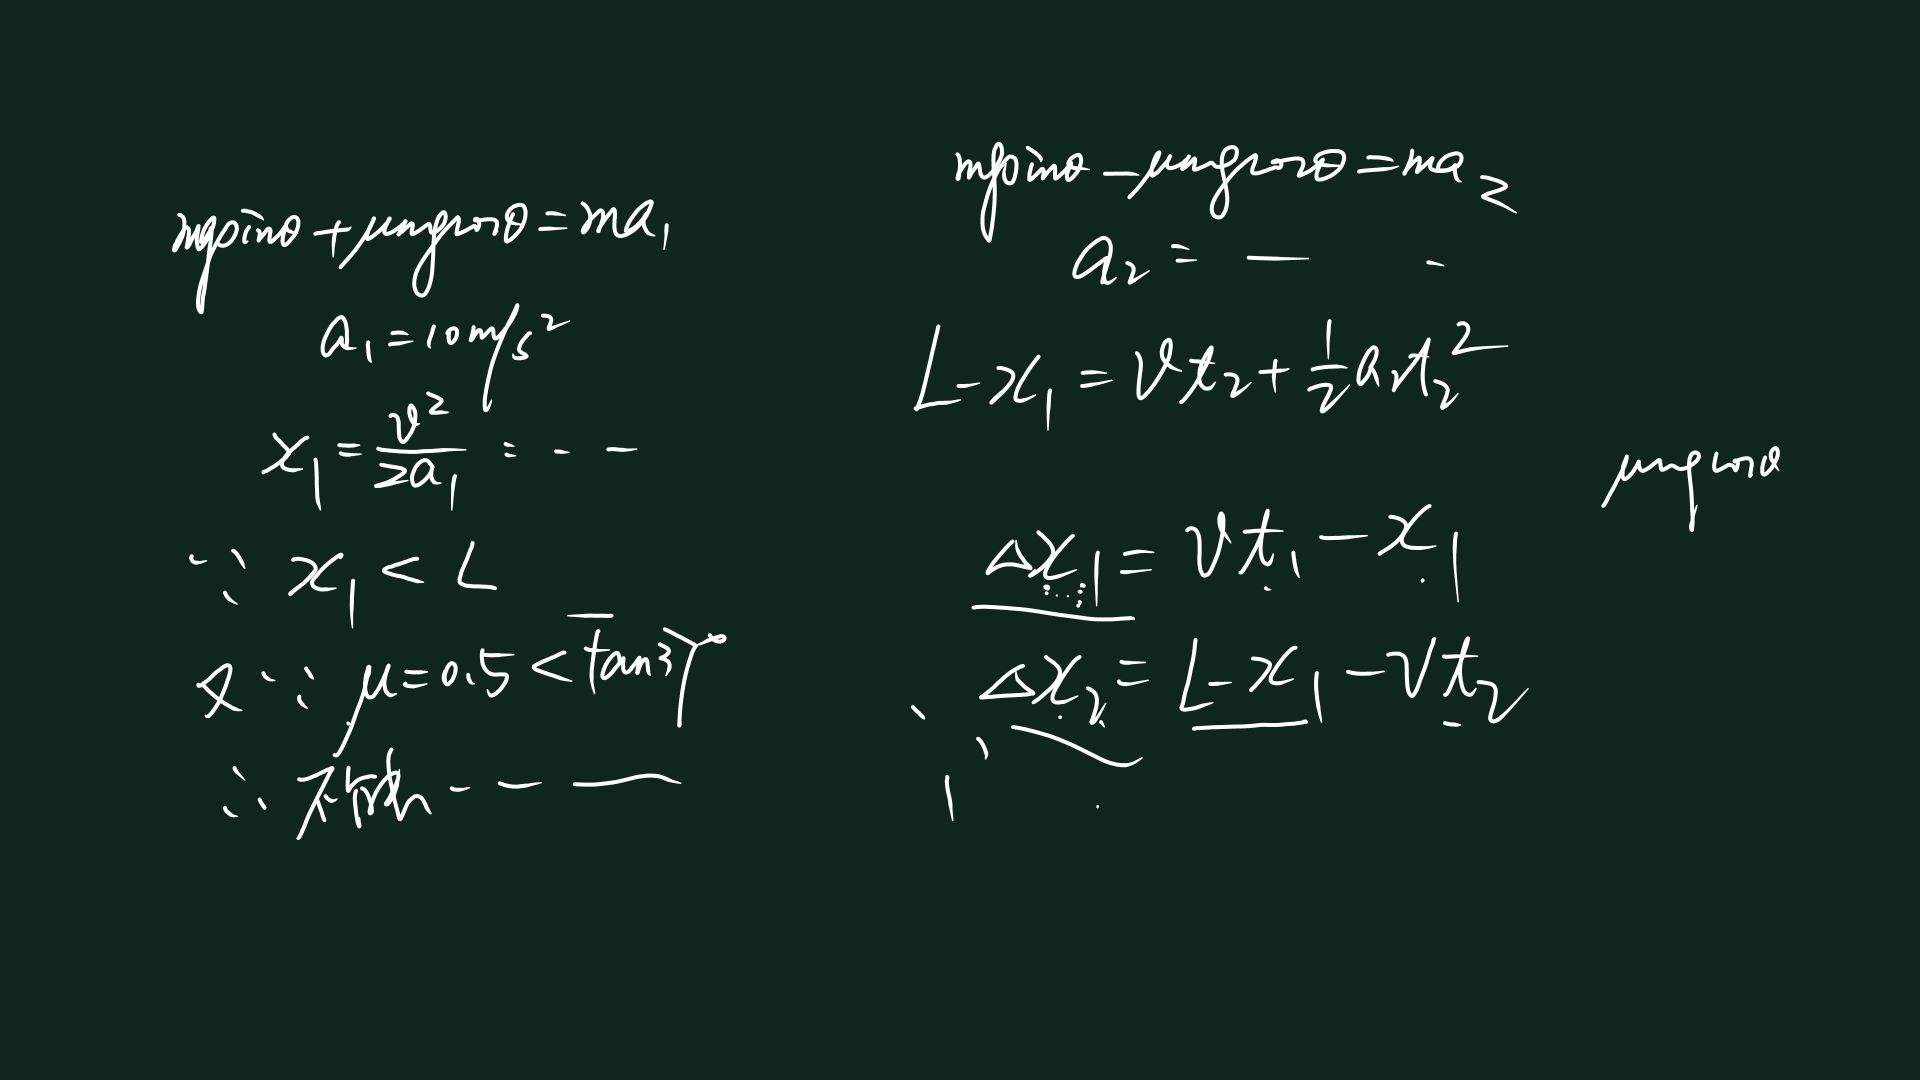 mgsinθ + μmgcosθ = ma₁
a₁ = 10m/s²
x₁ = v²/2a₁ = - -
∵ x₁ < L
又 ∵ μ = 0.5 < tan37°
∴ 不能 - - —
mgsinθ - μmgcosθ = ma₂
a₂ = — -
L - x₁ = vt₂ + 1/2 a₂t₂²
μmgcosθ
Δx₁ = vt₁ - x₁
Δx₂ = L - x₁ - vt₂